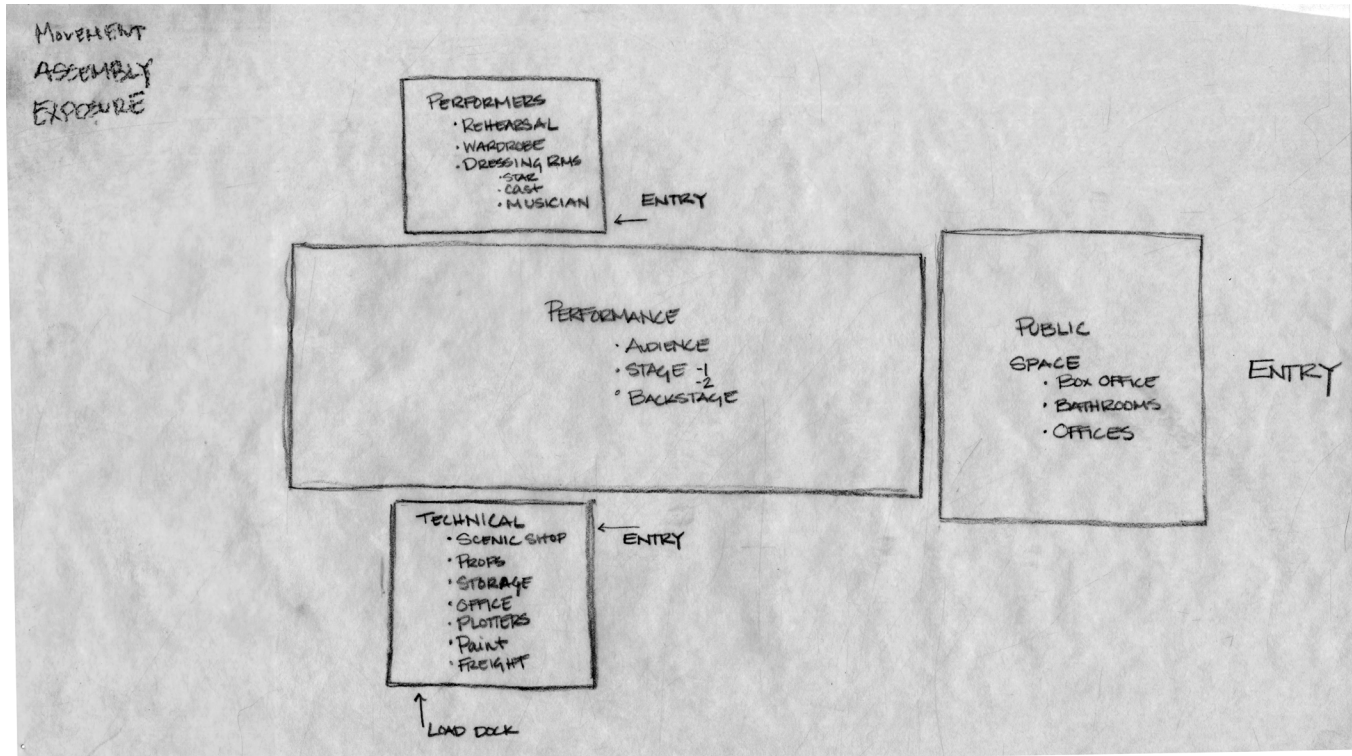 MOVEMENT
ASSEMBLY
EXPOSURE
PERFORMERS
· REHEARSAL
· WARDROBE
· DRESSING RMS
· STAR
· CAST
· MUSICIAN
← ENTRY
PERFORMANCE
· AUDIENCE
· STAGE -1
-2
· BACKSTAGE
PUBLIC
SPACE
· BOX OFFICE
· BATHROOMS
· OFFICES
ENTRY
TECHNICAL
· SCENIC SHOP
· PROPS
· STORAGE
· OFFICE
· PLOTTERS
· Paint
· FREIGHT
← ENTRY
↑ LOAD DOCK